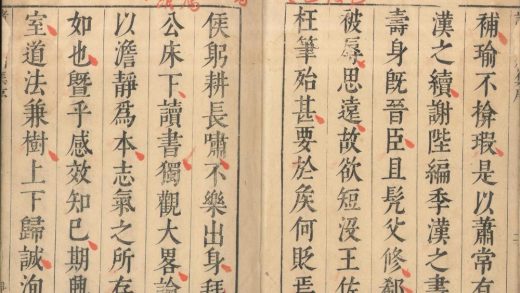 補瑜不揜瑕是以蕭常有
漢之續謝陛編季漢之書
壽身旣晉臣且髠父修郄
被辱思遠故欲短沒王佐
枉筆殆甚要於矦何貶焉
侯躬耕長嘯不樂出身拜
公床下讀書獨觀大畧論
以澹靜爲本志氣之所存
如也曁乎感效知己期興
室道法兼樹上下歸誠洵